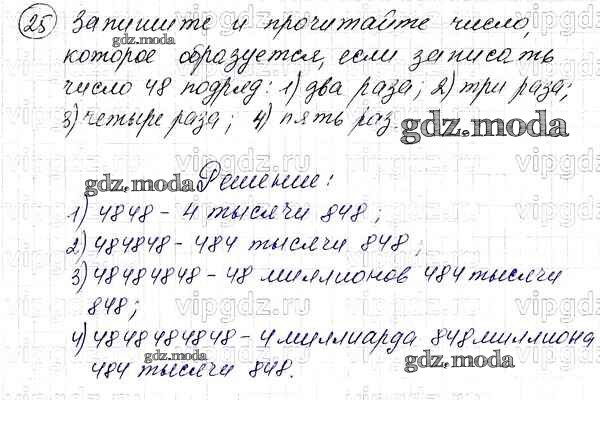 25 Запишите и прочитайте число,
gdz.moda
которое образуется, если записать
число 48 подряд: 1) два раза; 2) три раза;
3) четыре раза; 4) пять раз.
gdz.moda
Решение:
gdz.moda
1) 4848 - 4 тысячи 848;
2) 484848 - 484 тысячи 848;
3) 48484848 - 48 миллионов 484 тысячи
848;
4) 4848484848 - 4 миллиарда 848 миллиона
gdz.moda gdz.moda
484 тысячи 848.
vipgdz.ru